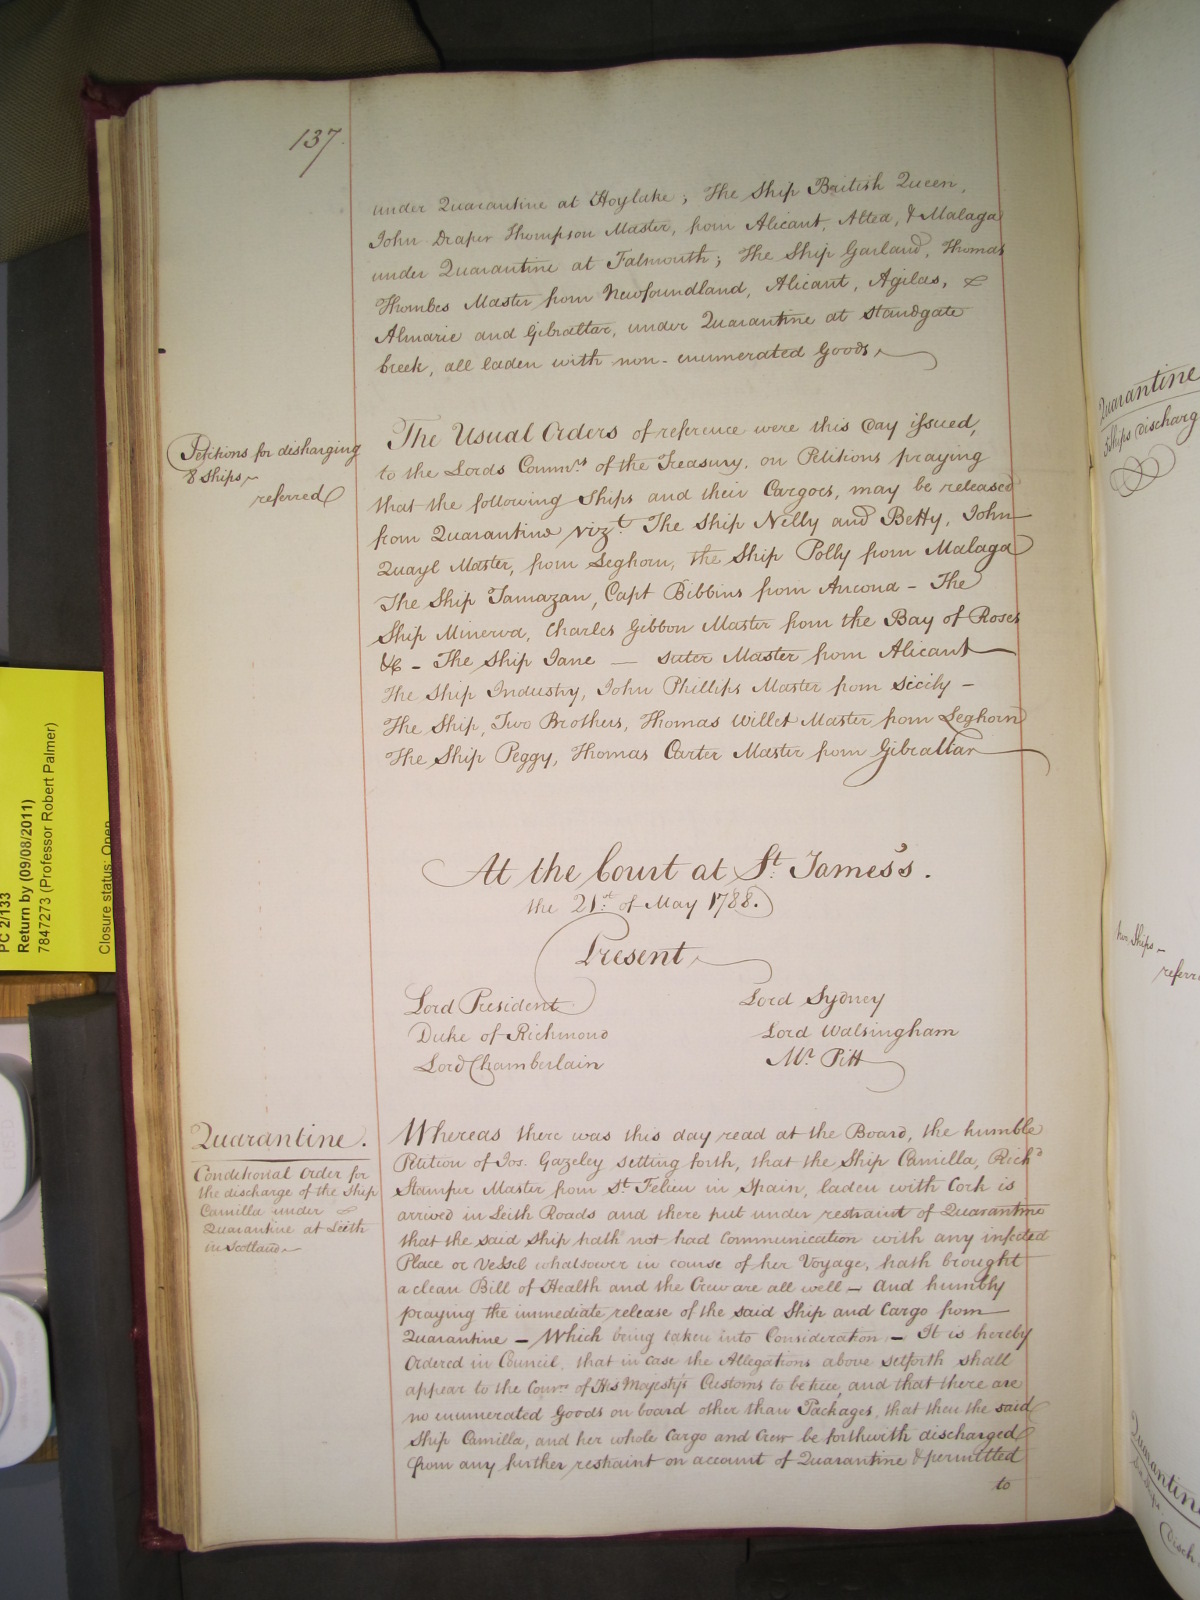 137
under Quarantine at Hoylake; The Ship British Queen,
John Draper Thompson Master, from Alicant, Altea, & Malaga
under Quarantine at Falmouth; The Ship Garland, Thomas
Thombes Master from Newfoundland, Alicant, Agilas, &
Almarie and Gibralttar, under Quarantine at Standgate
Creek, all laden with non-enumerated Goods
Petitions for disharging
8 Ships
referred
The Usual Orders of reference were this Day issued,
to the Lords Commrs of the Treasury, on Petitions praying
that the following Ships and their Cargoes, may be released
from Quarantine vizt. The Ship Nelly and Betty, John
Quayl Master, from Leghorn, the Ship Polly from Malaga
The Ship Tamazan, Capt Bibbins from Ancona – The
Ship Minerva, Charles Gibbon Master from the Bay of Roses
&c – The Ship Jane — Suter Master from Alicant
The Ship Industry, John Phillips Master from Sicily –
The Ship, Two Brothers, Thomas Willet Master from Leghorn
The Ship Peggy, Thomas Carter Master from Gibralttar
At the Court at St. James's.
the 21st. of May 1788.
Present
Lord President
Duke of Richmond
Lord Chamberlain
Lord Sydney
Lord Walsingham
Mr. Pitt
Quarantine.
Conditional Order for
the discharge of the Ship
Camilla under
Quarantine at Leith
in Scotland
Whereas there was this day read at the Board, the humble
Petition of Jos. Gazeley setting forth, that the Ship Camilla, Richd
Stamper Master from St. Felieu in Spain, laden with Cork is
arrived in Leith Roads and there put under restraint of Quarantine
that the said Ship hath not had Communication with any infected
Place or Vessel whatsoever in course of her Voyage, hath brought
a clean Bill of Health and the Crew are all well – And humbly
praying the immediate release of the said Ship and Cargo from
Quarantine – Which being taken into Consideration, – It is hereby
Ordered in Council, that in case the Allegations above setforth shall
appear to the Commrs of His Majesty's Customs to be true, and that there are
no enumerated Goods on board other than Packages, that then the said
Ship Camilla, and her whole Cargo and Crew be forthwith discharged
from any further restraint on account of Quarantine & permitted
to
PC 2/133
Return by (09/08/2011)
7847273 (Professor Robert Palmer)
Closure status: Open
Quarantine
Ships discharg
Ships
referr
Quarantin